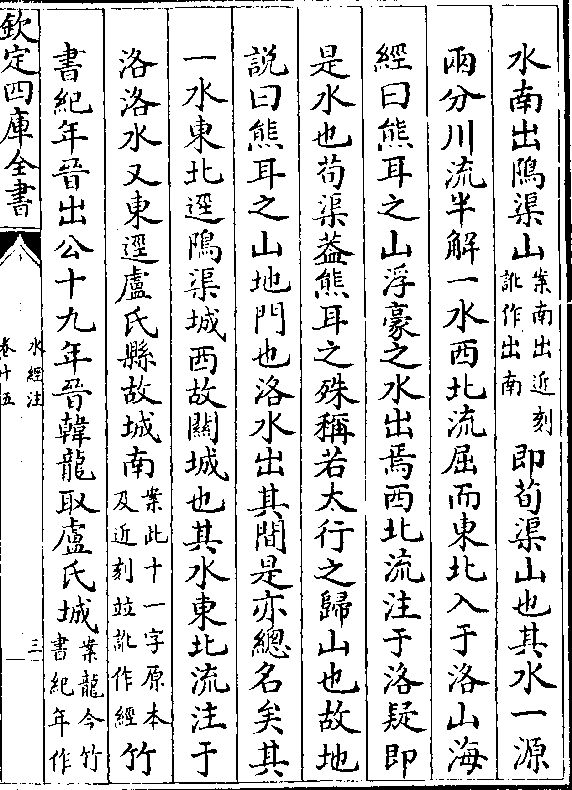 水南出隝渠山案南出近刻訛作出南即荀渠山也其水一源
兩分川流半解一水西北流屈而東北入于洛山海
經曰熊耳之山浮豪之水出焉西北流注于洛疑即
是水也荀渠葢熊耳之殊稱若太行之歸山也故地
説曰熊耳之山地門也洛水出其間是亦總名矣其
一水東北逕隝渠城西故關城也其水東北流注于
洛洛水又東逕盧氏縣故城南案此十一字原本及近刻竝訛作經竹
書紀年晉出公十九年晉韓龍取盧氏城案龍今竹書紀年作
欽定四庫全書
水經注
卷十五
三